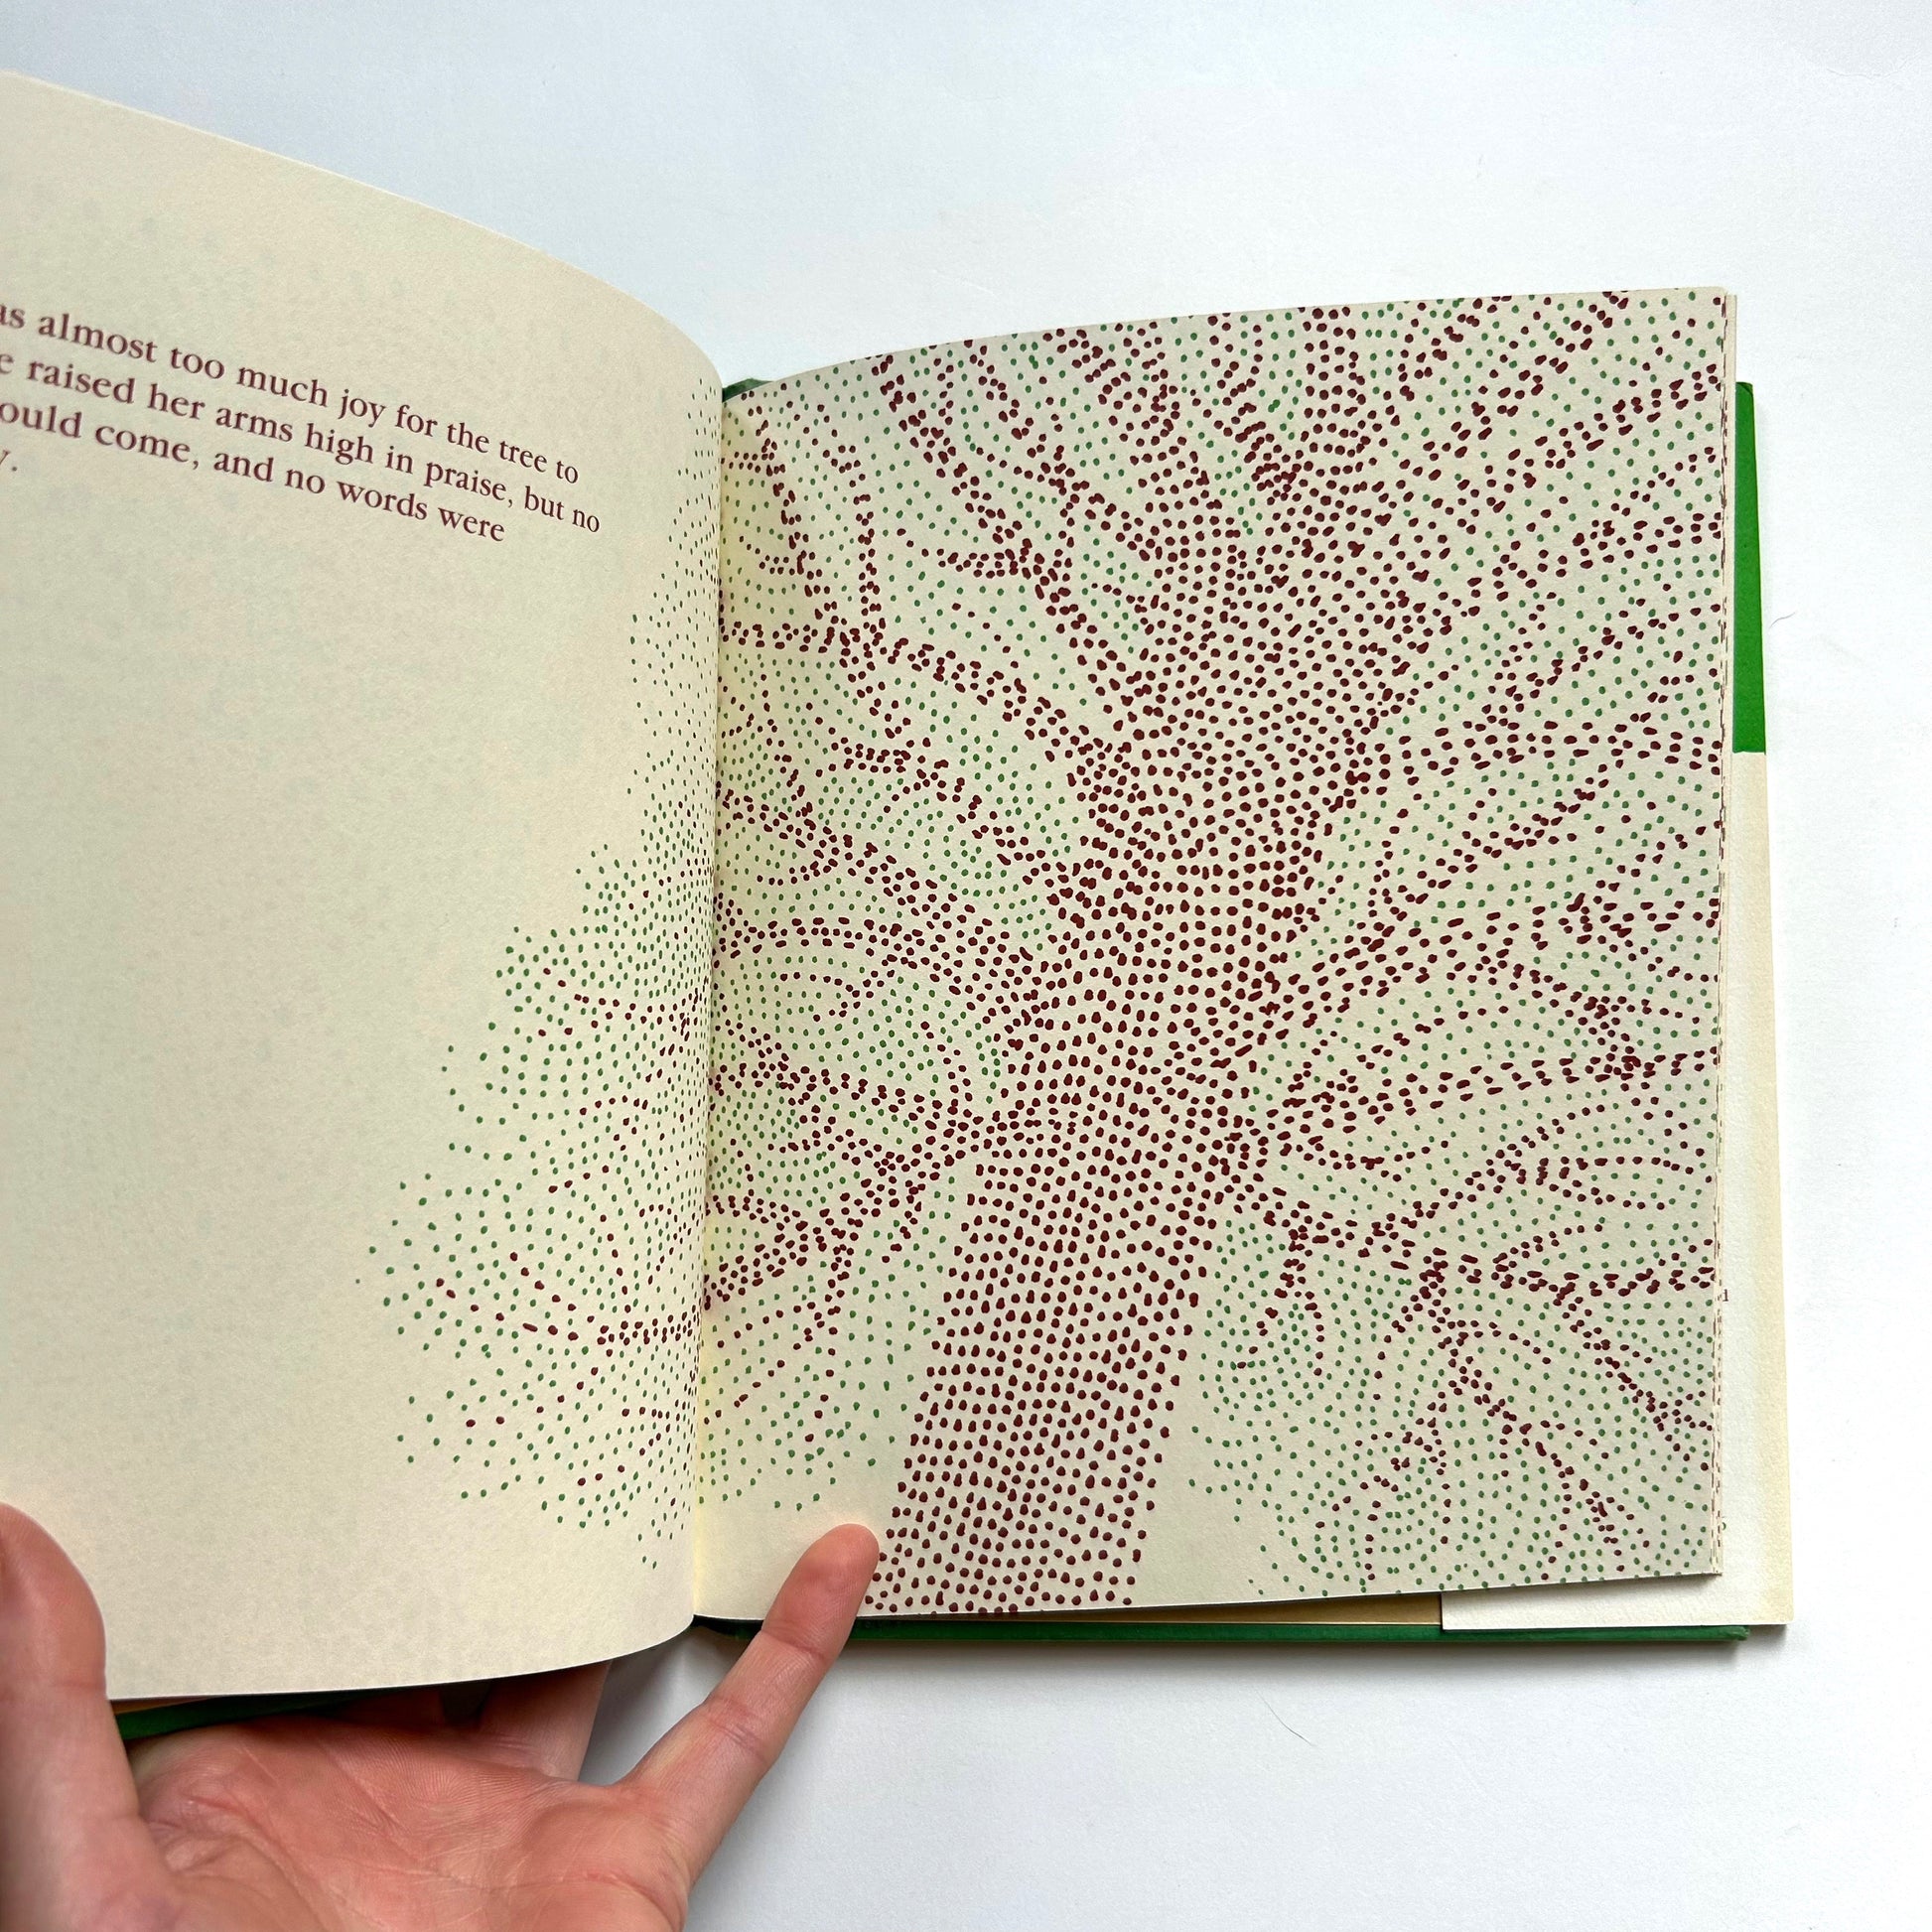 as almost too much joy for the tree to
raised her arms high in praise, but no
ould come, and no words were